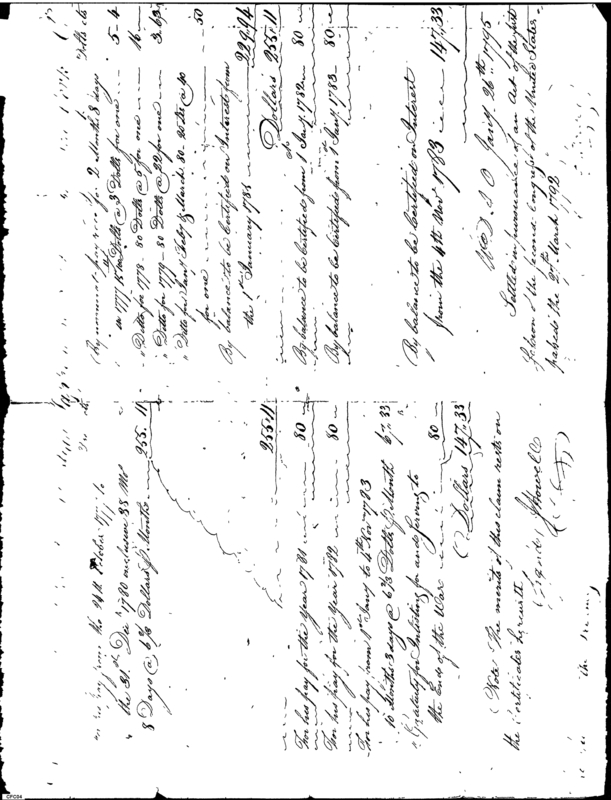 the 31st Decr 1780 inclusive 38 Mos
8 Days @ 6 2/3 Dollars P Month 255.11
255.11
For his pay for the Year 1781 80
For his pay for the Year 1782 80
For his pay from 1st Jany to 4th Nov 1783
10 Months 3 days @ 6 2/3 Dolls P Month 67.33
Gratuity for Inlisting for and serving to
the End of the War 80
Dollars 147.33
(Note The merits of this claim rests on
the Certificates herewith
Signed J Howell
Dolls Cts
By nominal pay recd for 2 Months 8 days
in 1777 15 Dolls @ 3 Dolls for one 5-4
Ditto for 1778 - 80 Dolls @ 5 for one 16
Ditto for 1779 - 80 Dolls @ 22 for one
Ditto for Jany Feby & March 80 20 Dolls @ 40
for one 50
By balance to be Certified on Interest from
the 1st January 1781 229.94
Dollars 255.11
By balance to be Certified from 1 Jany 1782 80
By balance to be Certified from 1 Jany 1783 80
By balance to be Certified on Interest
from the 4th Novr 1783 147.33
Jany 26th 1795
Settled in pursuance of an Act of the first
Session of the second Congress of the United States
passed the 27th March 1792
CPC04